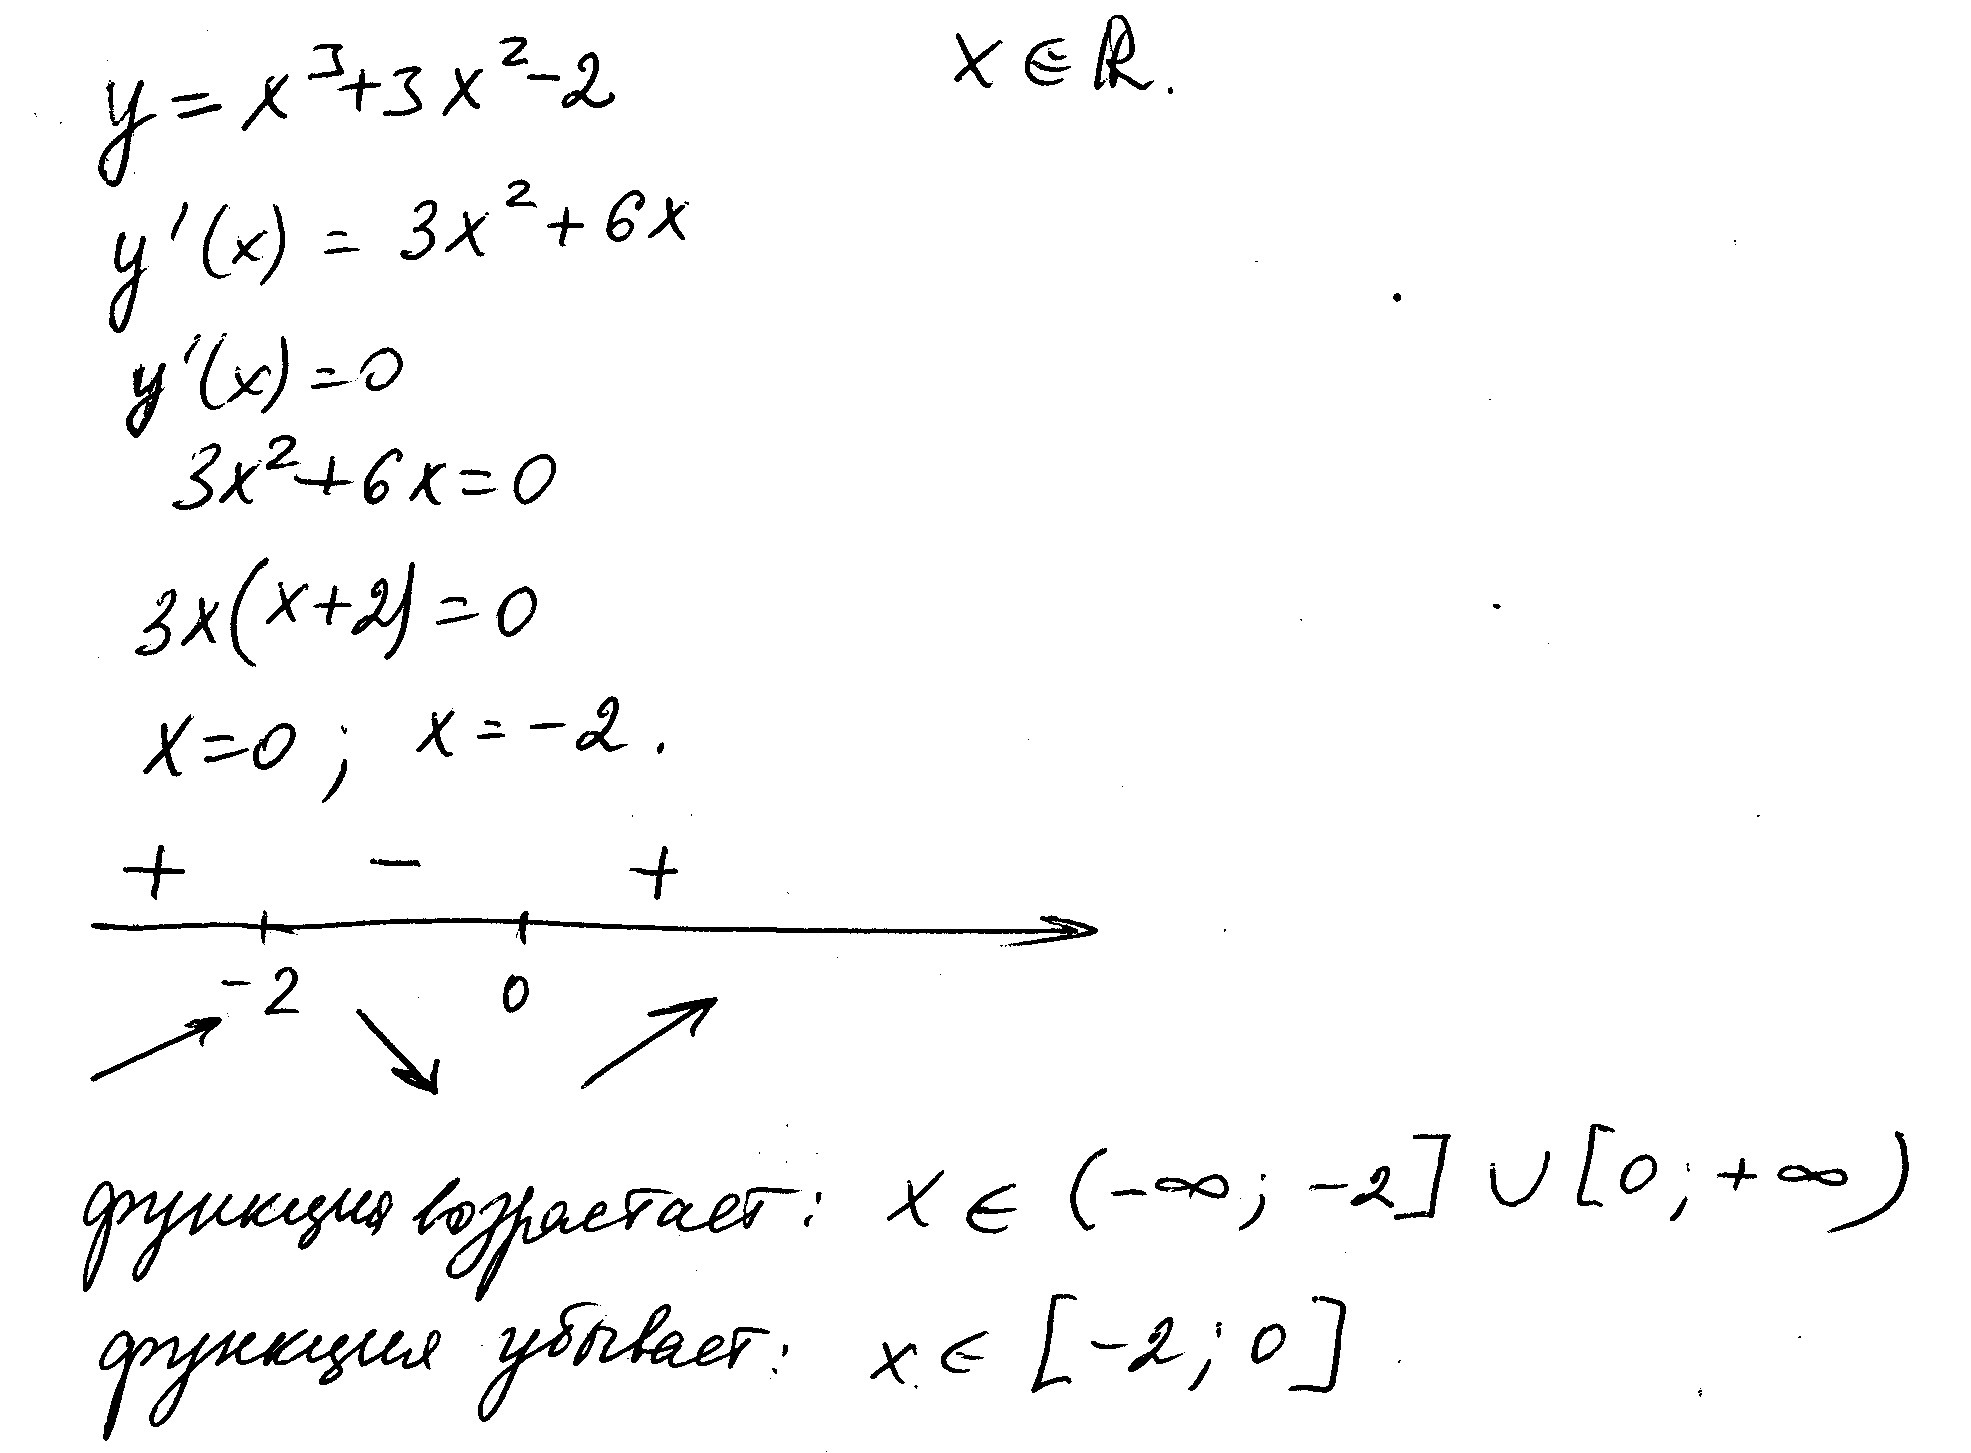 y = x³+3x²-2 x ∈ ℝ.
y'(x) = 3x² + 6x
y'(x) = 0
3x²+6x=0
3x(x+2)=0
x=0 ; x = -2 .
+ - +
-2 0
функция возрастает: x ∈ (-∞; -2] ∪ [0; +∞)
функция убывает: x ∈ [-2; 0]